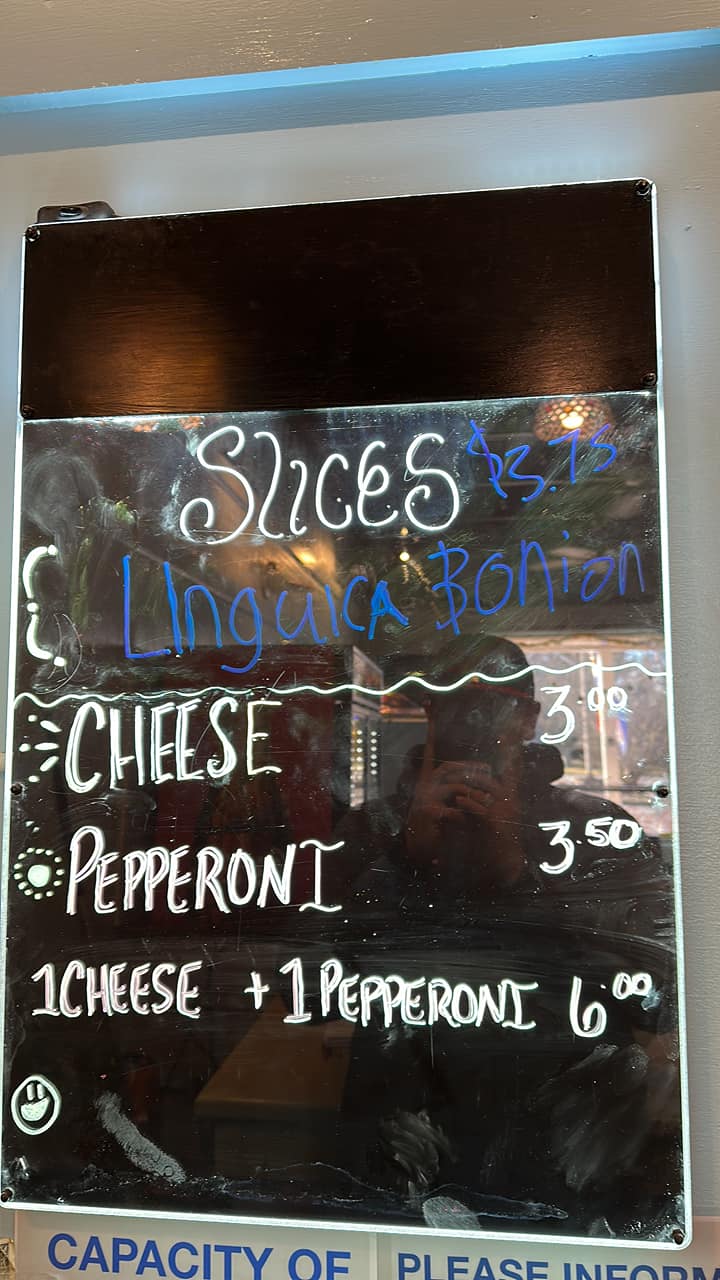 SLICES $3.75
LINguiCA BONion
CHEESE 3.00
PEPPERONI 3.50
1 CHEESE + 1 PEPPERONI 6.00
CAPACITY OF PLEASE INFORM